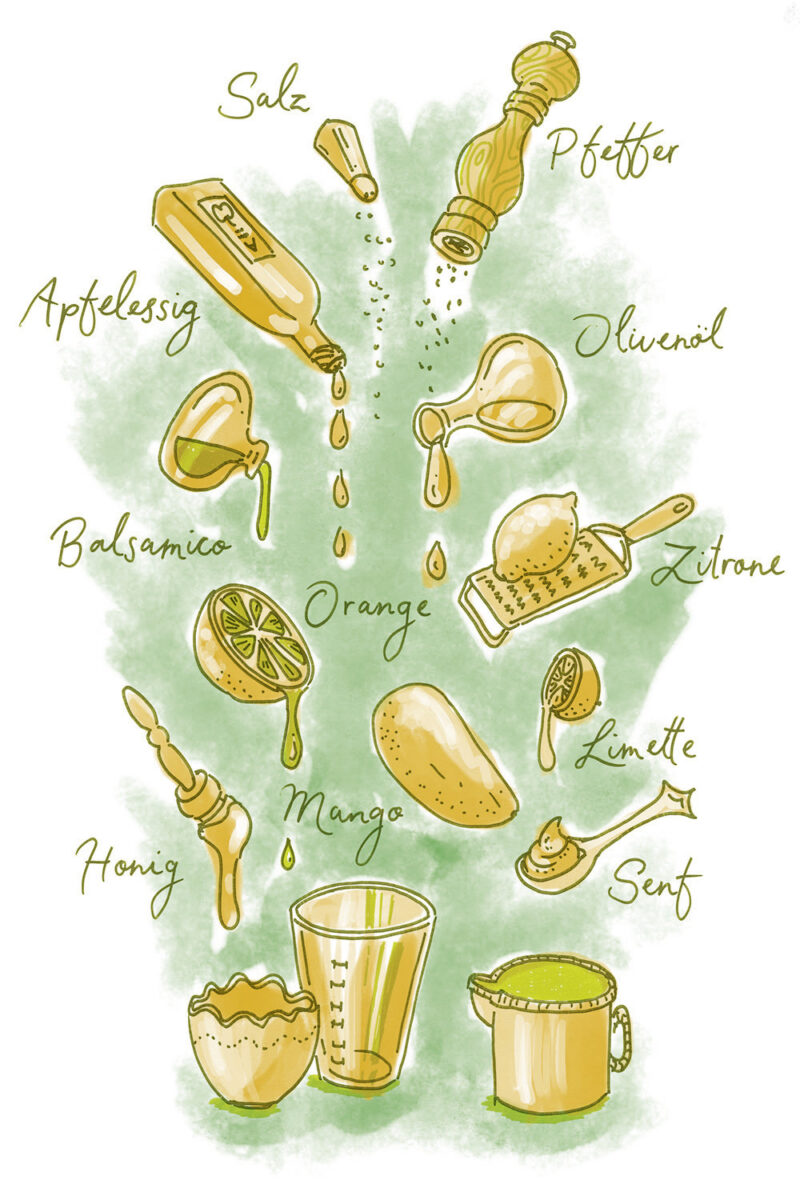 Salz
Pfeffer
Apfelessig
Olivenöl
Balsamico
Zitrone
Orange
Limette
Mango
Honig
Senf